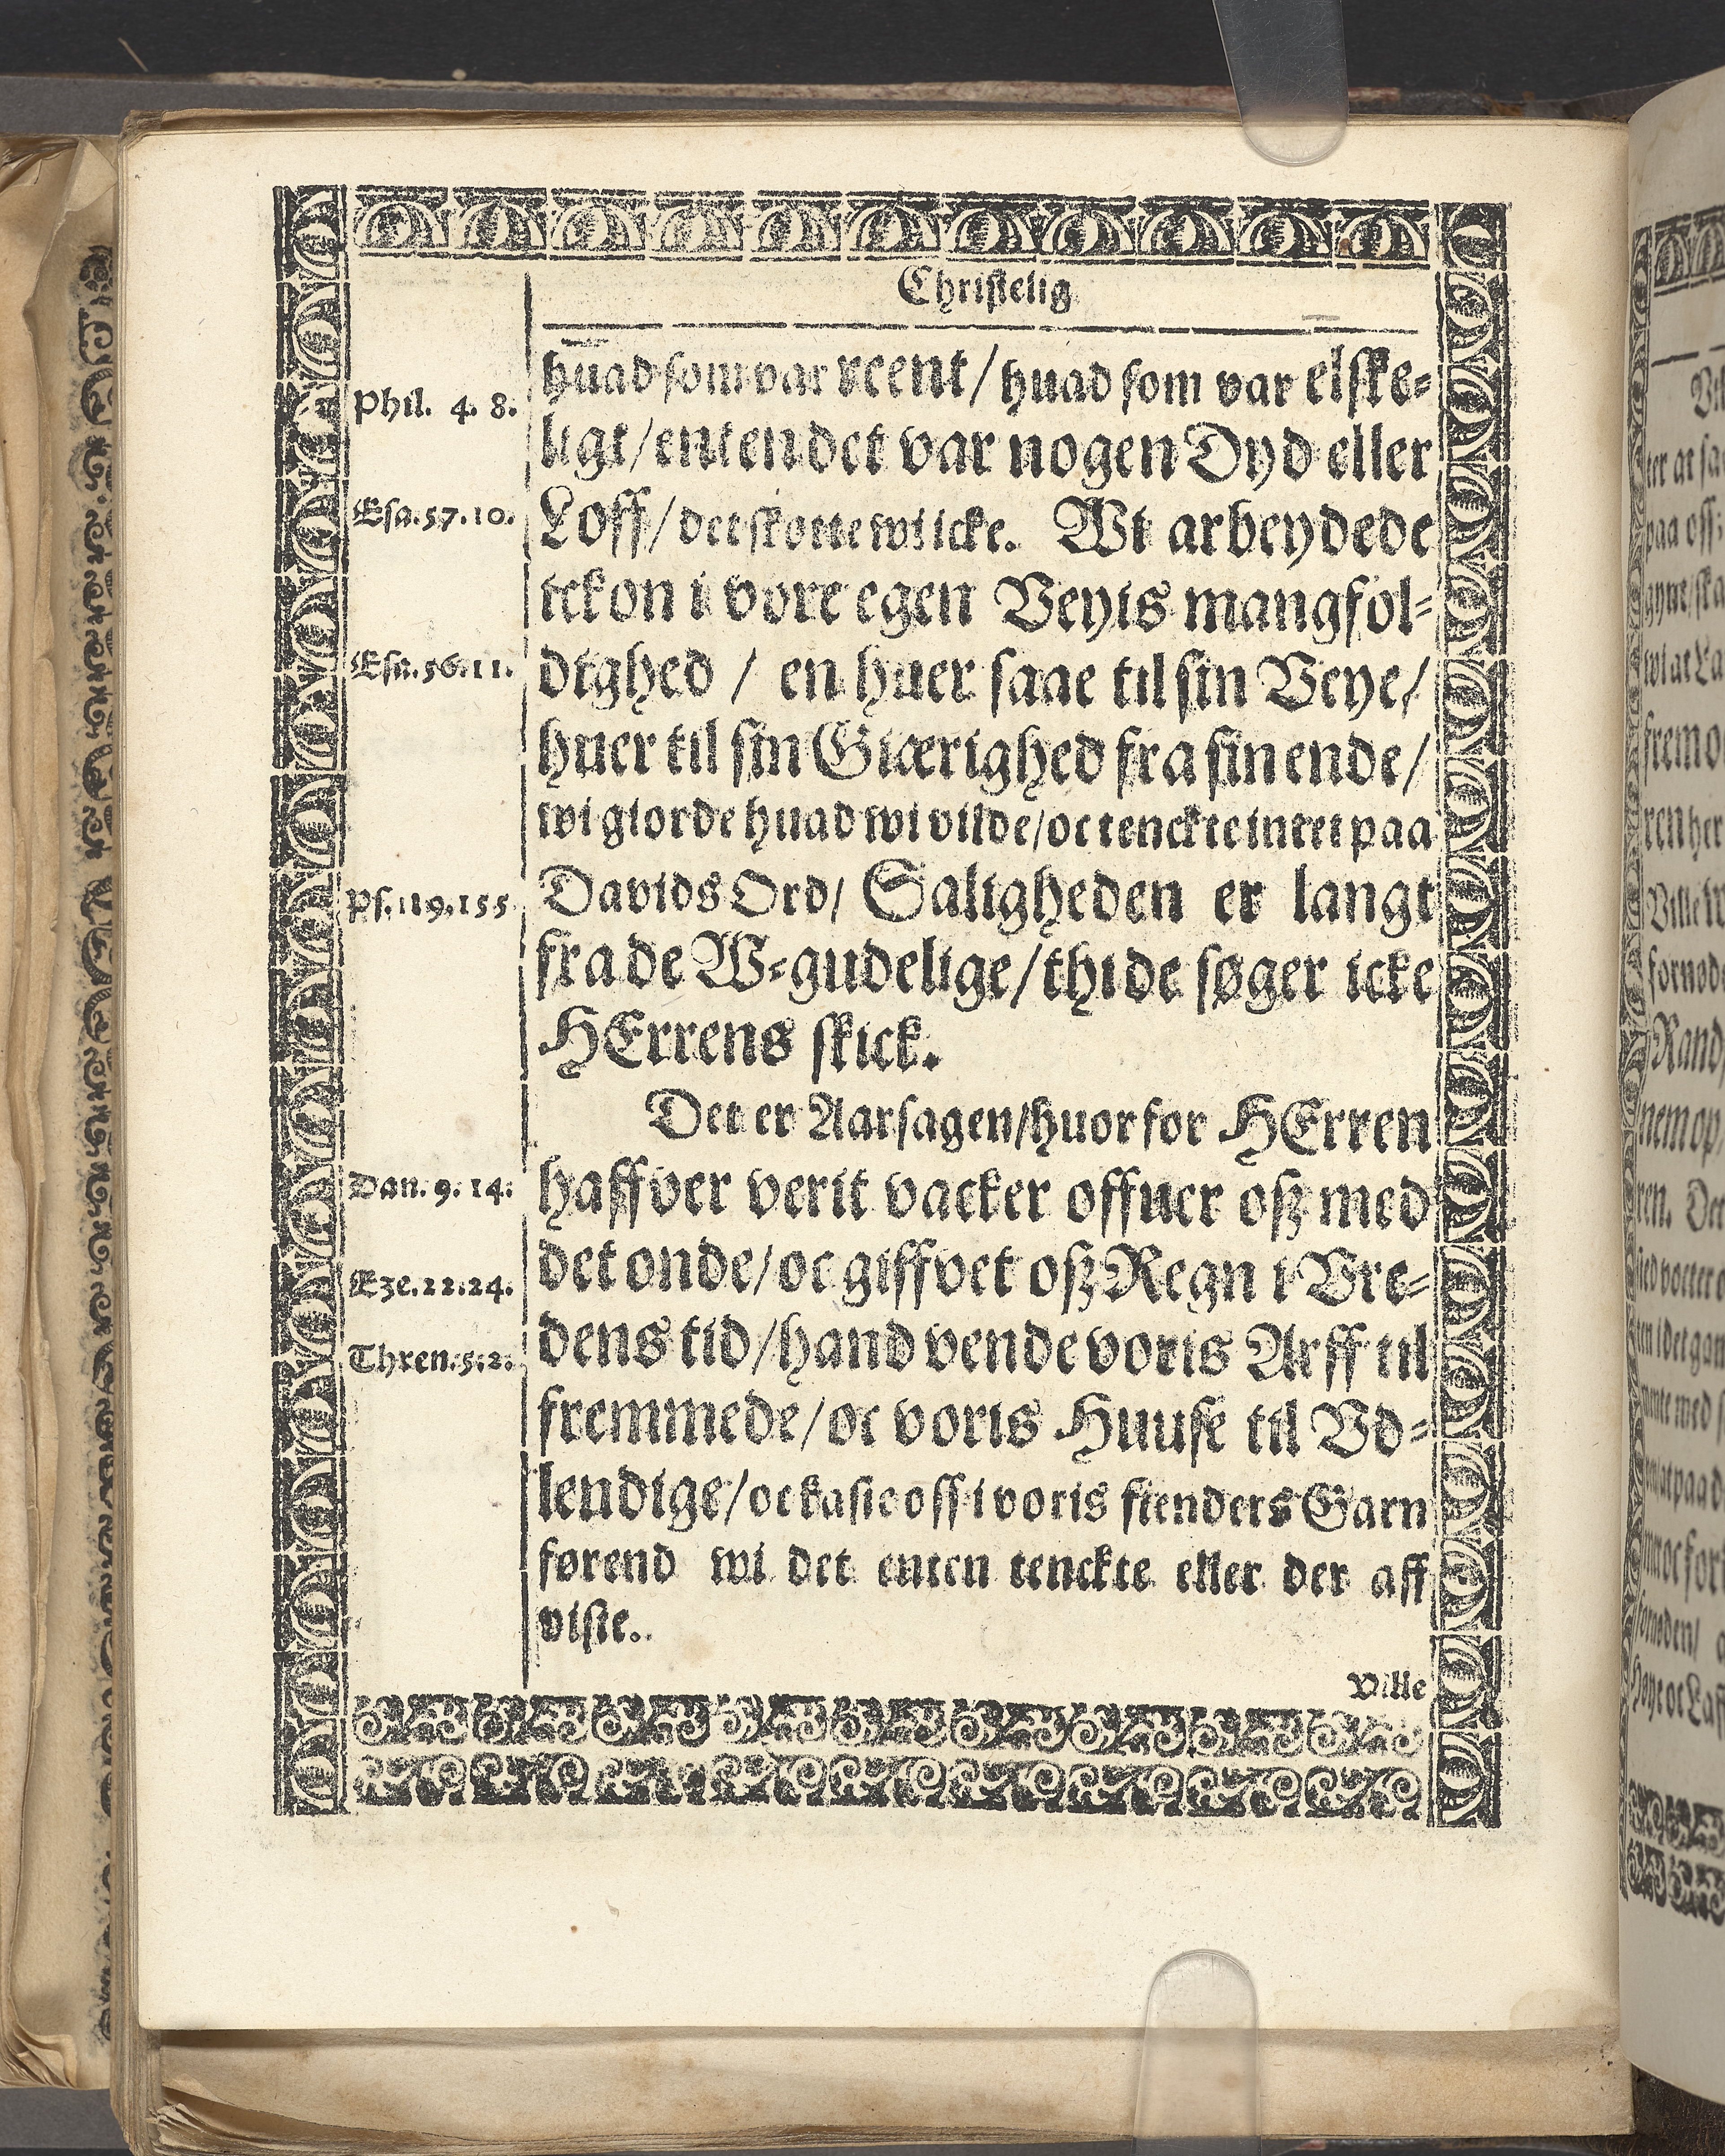 Christelig
huad som var reent / huad som var elske-
Phil. 4. 8.
ligt / enten det var nogen Dyd eller
Esa. 57. 10.
Loff / det skøtte wi icke. Wi arbeydede
ickon i vore egen Veyis mangfol-
Esa. 56. 11.
dighed / en huer saae til sin Veye /
huer til sin Giærighed fra sin ende /
wi giorde huad wi vilde / oc tenckte intet paa
Ps. 119. 155.
Davids Ord / Saligheden er langt
fra de W-gudelige / thi de søger icke
HErrens skick.
Det er Aarsagen / huor for HErren
Dan. 9. 14.
haffver verit vacker offuer osz med
Eze. 22. 24.
det onde / oc giffvet osz Regn i Vre-
Thren. 5. 2.
dens tid / hand vende voris Arff til
fremmede / oc voris Huuse til Vd-
lendige / oc kaste oss i voris fienders Garn
førend wi det enten tenckte eller der aff
viste.
Ville